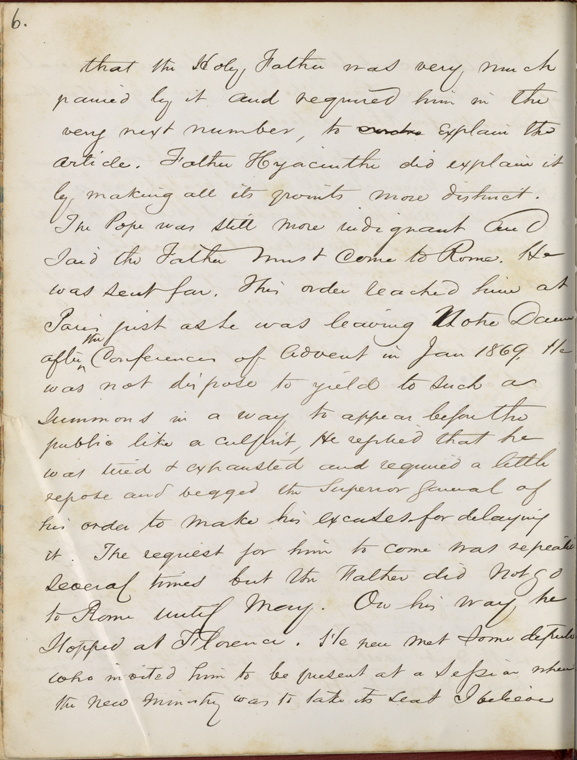 6.
that the Holy Father was very much
pained by it and required him in the
very next number, to explain the
article. Father Hyacinthe did explain it
by making all its points more distinct.
The Pope was still more indignant and
said the Father must come to Rome. He
was sent for. This order reached him at
Paris just as he was leaving Notre Dame
after the Conferences of Advent in Jan 1869. He
was not dispose to yield to such a
summons in a way to appear before the
public like a culprit, He replied that he
was tired & exhausted and required a little
repose and begged the Superior General of
his order to make his excuses for delaying
it. The request for him to come was repeated
several times but the Father did not go
to Rome until May. On his way he
stopped at Florence. He met some
who invited him to be present at a Session when
the new ministry was to take its seat I believe